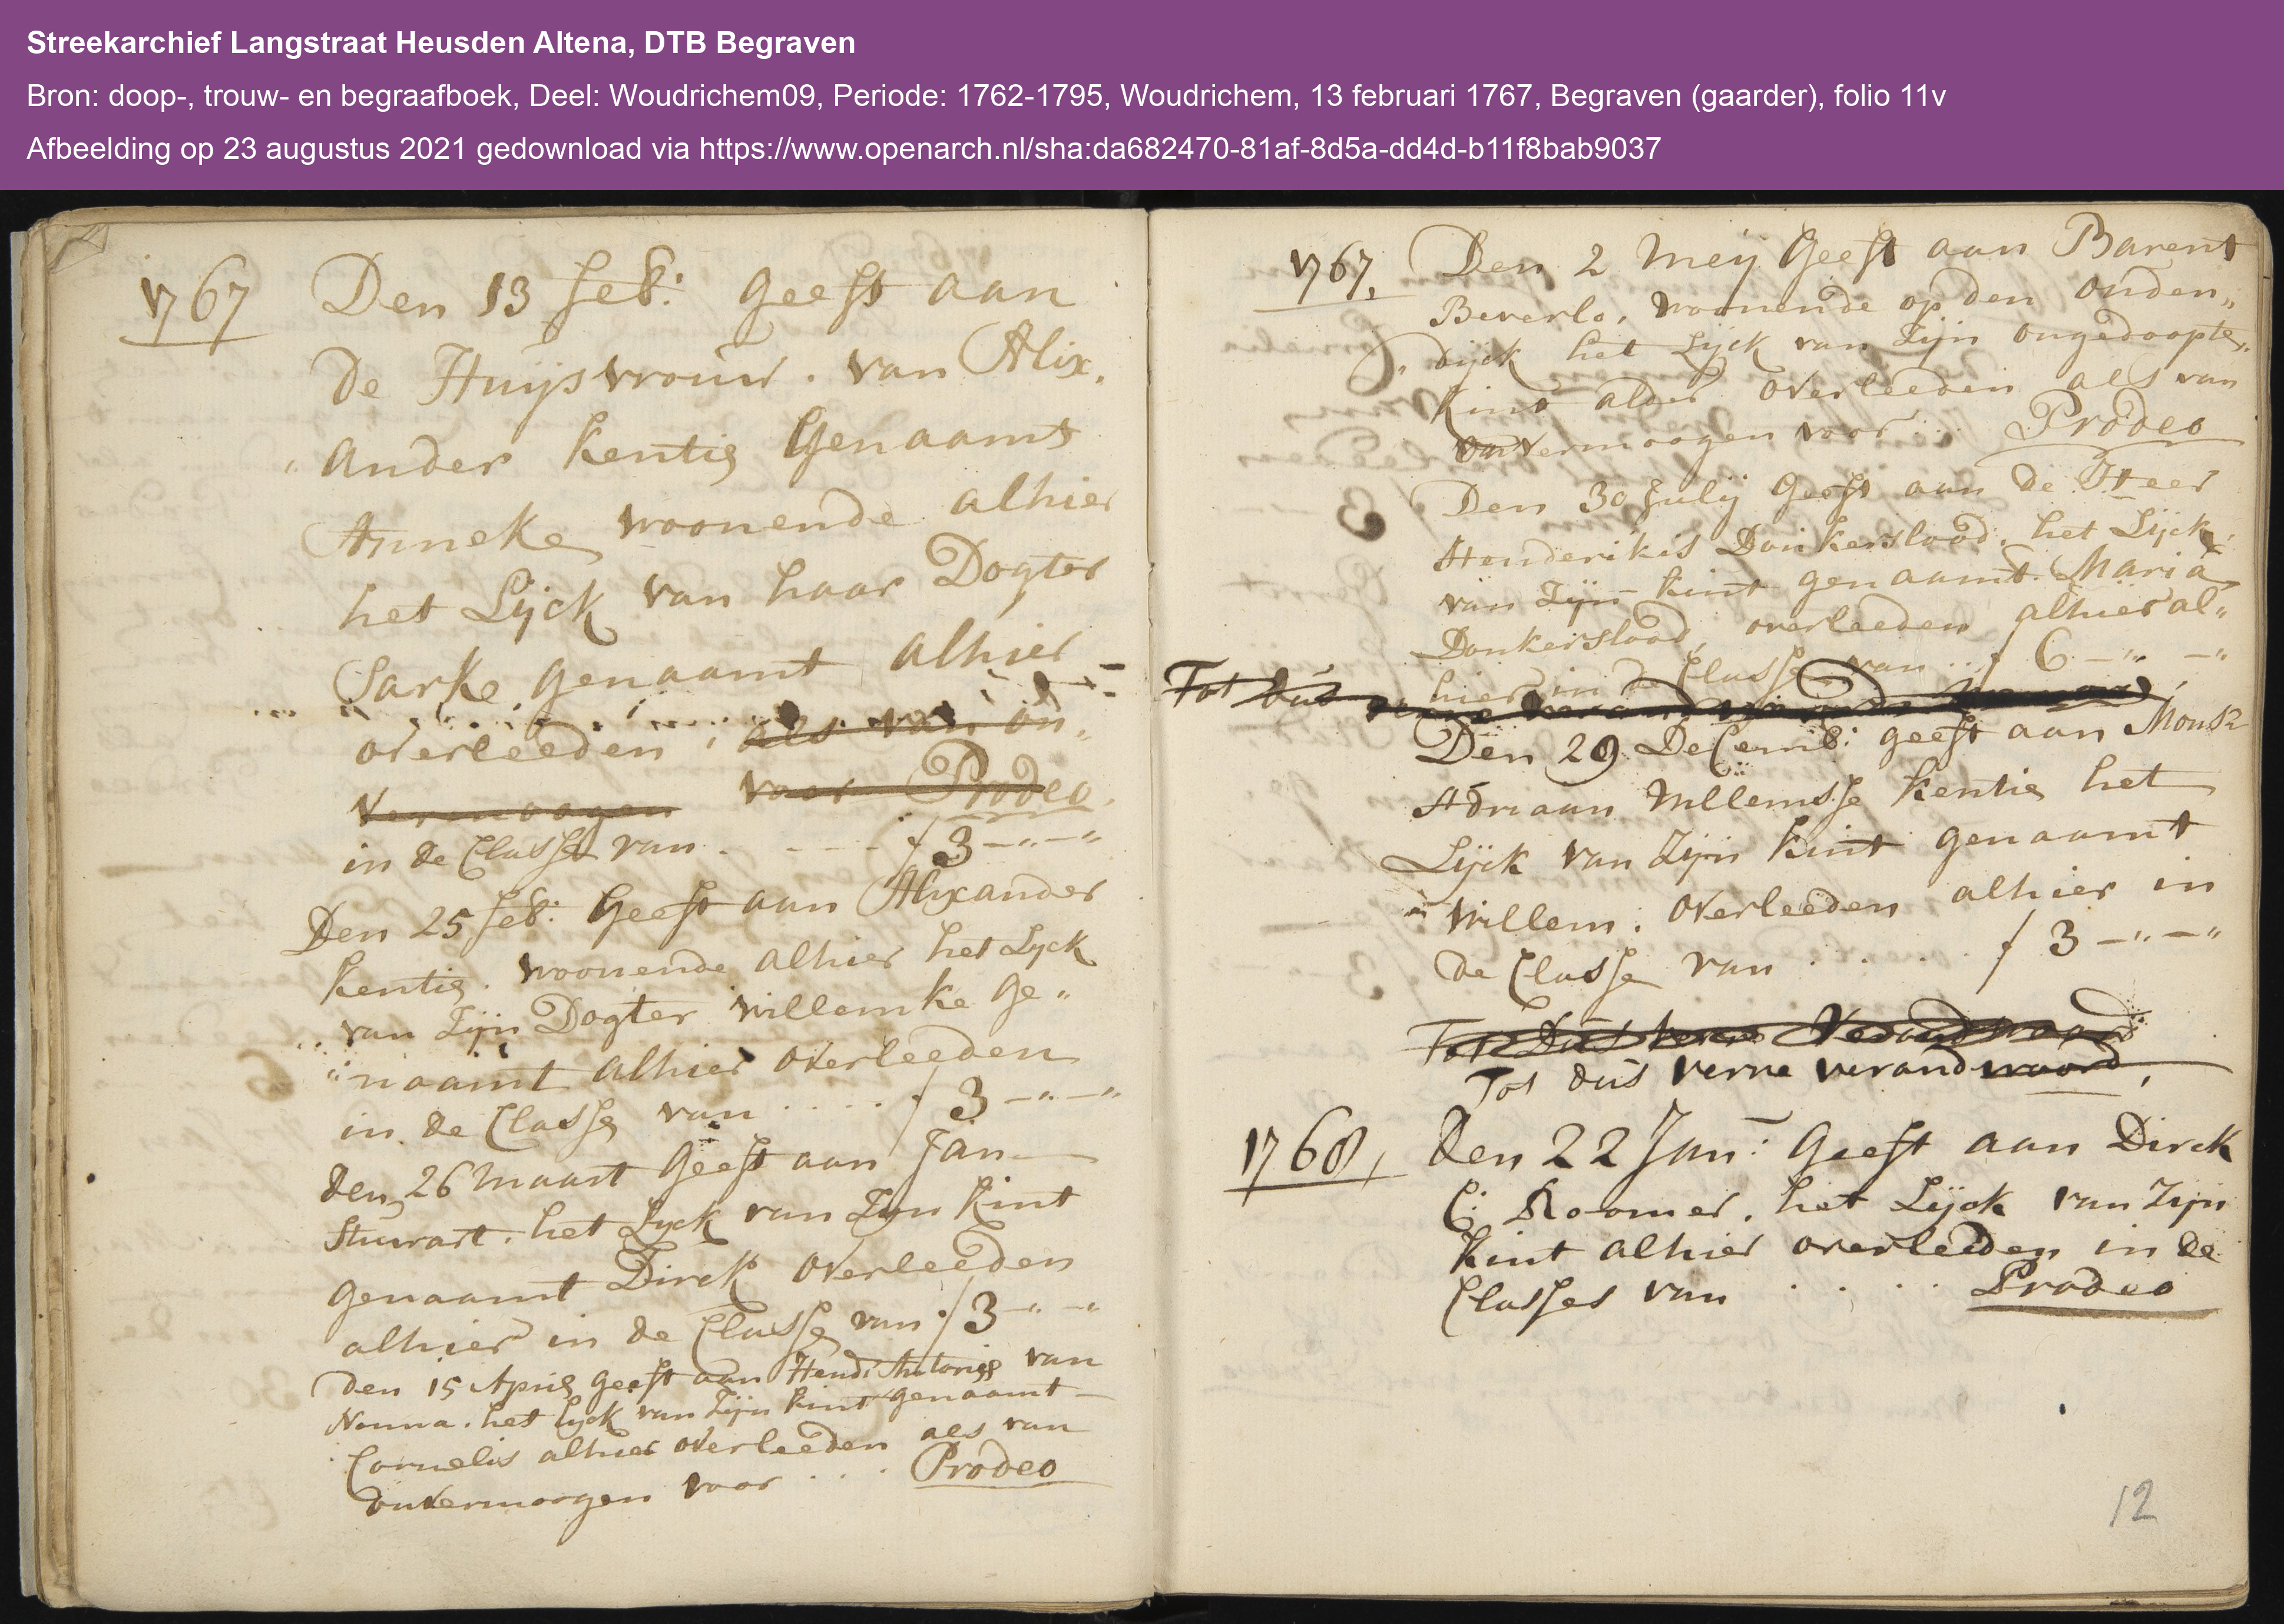 Streekarchief Langstraat Heusden Altena, DTB Begraven
Bron: doop-, trouw- en begraafboek, Deel: Woudrichem09, Periode: 1762-1795, Woudrichem, 13 februari 1767, Begraven (gaarder), folio 11v
Afbeelding op 23 augustus 2021 gedownload via https://www.openarch.nl/sha:da682470-81af-8d5a-dd4d-b11f8bab9037
1767 Den 13 feb: geeft aan
de Huijsvrouw. van Alix,
ander Kentie Genaamt
Anneke woonende alhier
het Lijck van haar Dogter
Sarke genaamt alhier
overleeden, als van on,
vermoogen voor Prodeo.
in de Classe van. - - - - f 3 -"-"
Den 25 feb: Geeft aan Alixander
Kentie. woonende alhier het Lyck
van Zijn Dogter willemke Ge"
"naamt alhier overleeden
in de Classe van . . . . . f 3 -"-"
den 26 maart Geeft aan Jan
Stuurart. het Lyck van Zijn Kint
genaamt Dirck overleeden
alhier in de Classe van . f 3 -"-"
Den 15 April geeft aan Hend: Antonisse van
Nouna. het lijck van Zijn Kint genaamt
Cornelis alhier overleeden als van
onvermoogen voor . . . . Prodeo
1767, Den 2 Meij Geeft aan Barent
Beverlo, woonende op den ouden,,
,, dijck het Lijck van Zijn ongedoopte,,
Kint alhier overleeden als van
onvermoogen voor . . . Prodeo
Den 30 Julij Geeft aan de Heer
Henderikis Donkerslood. het Lijck
van Zijn Kint genaamt. Maria
Donkerslood, overleeden alhier al"
hier in de Classe van . . f 6 -"-"
Tot dus
Den 29 Decemb: geeft aan Mons:r
Adriaan Willemsse Kentie het
Lijck van Zijn Kint genaamt
Willem. overleeden alhier in
de Classe van . . . . . f 3 -"-"
Tot dus verre Verandwoord
Tot dus verre verandwoord,
1768, Den 22 Jan: Geeft aan Dirck
C: Roomer. het Lijck van Zijn
Kint alhier overleeden in de
Classes van . . . . Prodeo
12